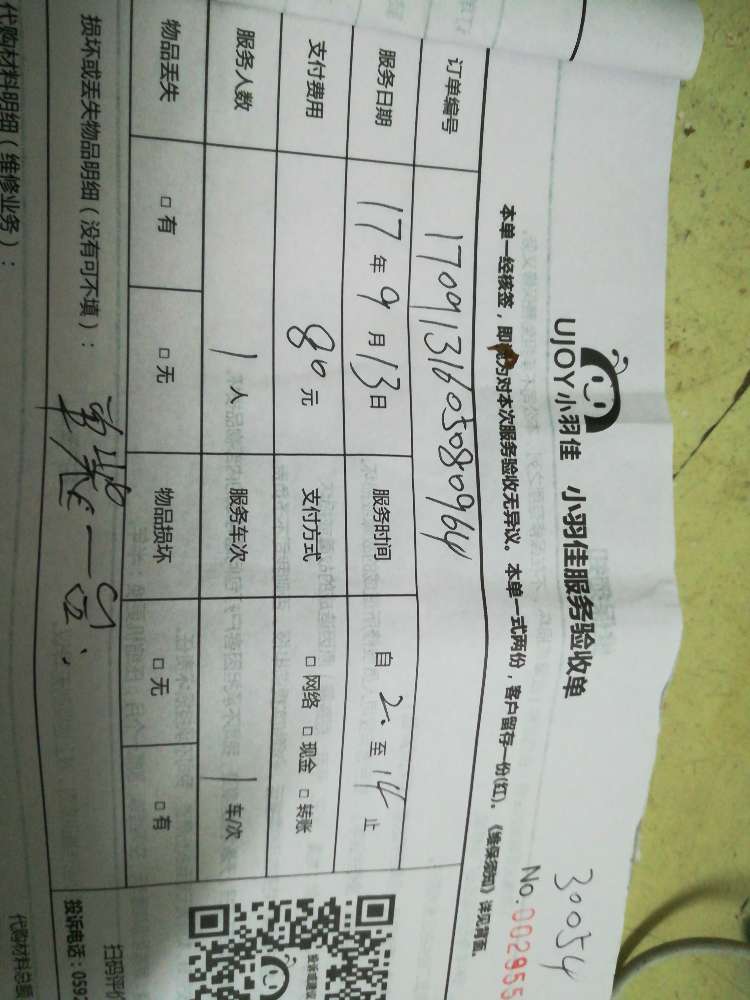 30054
UJOY小羽佳 小羽佳服务验收单
No.002955
本单一经核签，即视为对本次服务验收无异议。本单一式两份，客户留存一份(红)。《维保须知》详见背面。
订单编号 1709131605080964
服务日期 17年9月13日 服务时间 自 2. 至 14 止
支付费用 80元 支付方式 □网络 □现金 □转账
服务人数 1人 服务车次 1车/次
物品丢失 □有 □无 物品损坏 □无 □有
损坏或丢失物品明细（没有可不填）：
投诉电话：059
扫码评价
代购材料明细（维修业务）：
代购材料总额